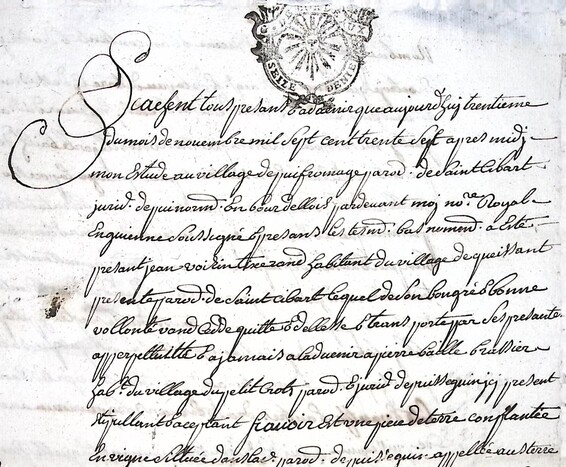 G DE BORDEAUX
SEIZE DENIE
Scachent tous presans & advenir que aujourd'huy trentieme
du mois de novembre mil sept cent trente sept apres midy
mon Estude au village de puifromage parod. de Saint Cibart
jurid. de puinorm. En bourdellois pardevant moj no.re Royal
En guienne Soussigné & presans les tesm. bas nommd. a Esté
presant jean voisin tixerand habitant du village de queissant
presente parod. de Saint Cibart lequel de Son bon gré & bonne
vollonté vand cedde quitte & dellesse & transporte par Ses presantes
apperpetuitté & a jamais a ladvenir a pierre baille brassier
hab.t du village du petit Crois parod. & jurid. de puisseguin jcj present
stipullant & aceptant Scavoir Est une piece de terre complantée
En vigne Scituée dans lad. parod. de puis.equin. appellée au sterre